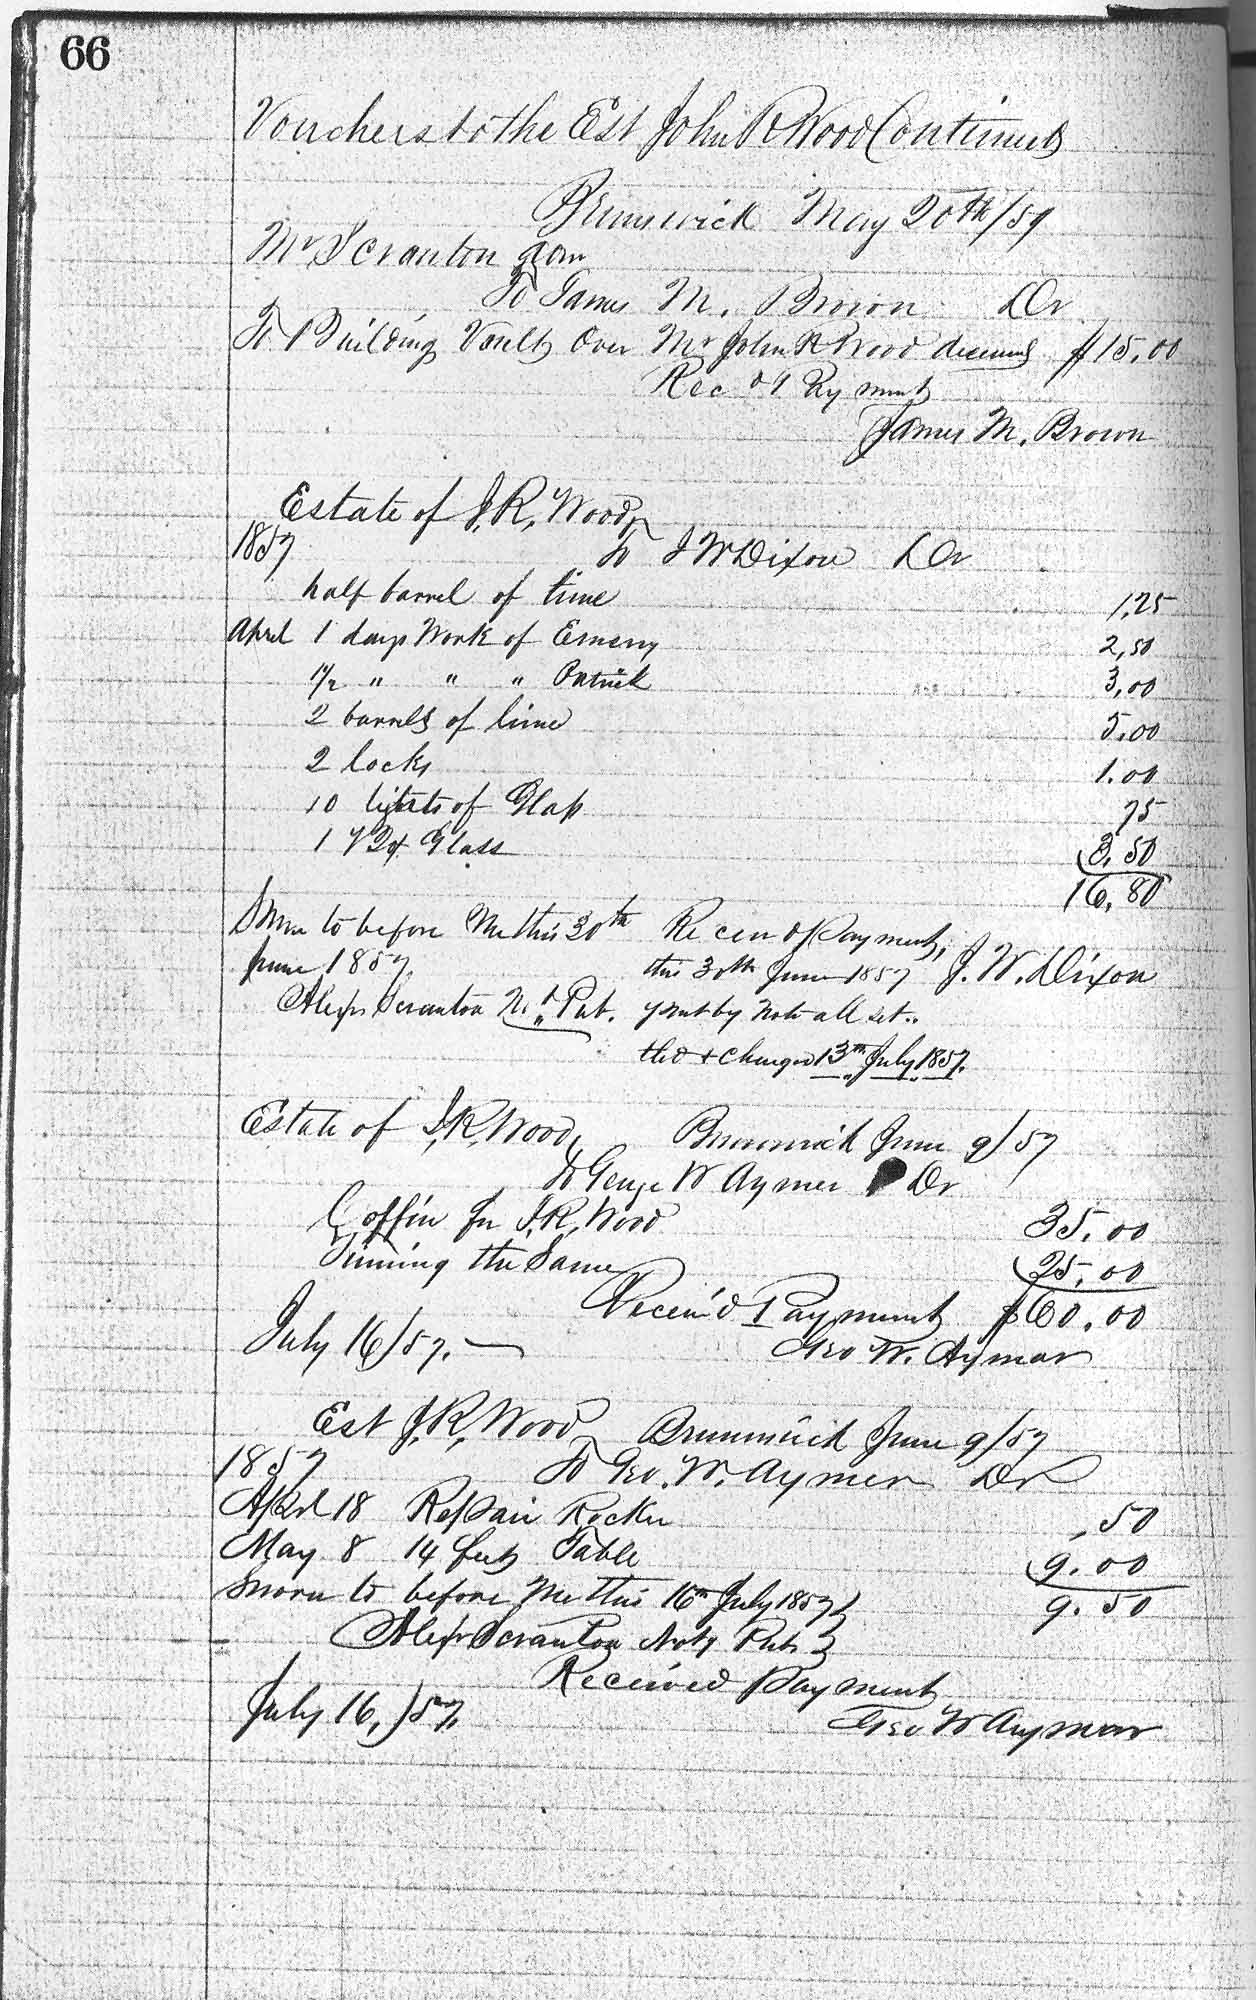 66
Vouchers to the Est John R Wood Continued
Brunswick May 20th/59
Mr Scranton
To James M. Brown Dr
To Building Vault Over Mr John R Wood deceased $15.00
Recd Payment
James M. Brown
Estate of J. R. Wood
1857 To J W Dixon Dr
half barrel of lime 1,25
April 1 days Work of Emery 2,50
1 1/2 " " " Patrick 3,00
2 barrels of lime 5.00
2 locks 1.00
10 lights of Glass 75
1 Glass 3.50
16,80
Sworn to before Me this 30th Received Payment,
June 1857. this 30th June 1857 J. W. Dixon
Alexr Scranton Nt. Pub. by Note all set..
tled & changed 13th July 1857.
Estate of J. R. Wood, Brunswick June 9/57
To George W Aymer Dr
Coffin for J. R. Wood 35.00
the Same 25.00
Receiv'd Payment $60.00
July 16/57. Geo W. Aymar
Est J. R. Wood Brunswick June 9/57
1857 To Geo. W. Aymer Dr
April 18 Repair Rocker ,50
May 8 14 feet Table 9.00
Sworn to before Me this 16th July 1857 9.50
Alexr Scranton Noty Pub
Received Payment
July 16,/57, Geo W Aymar